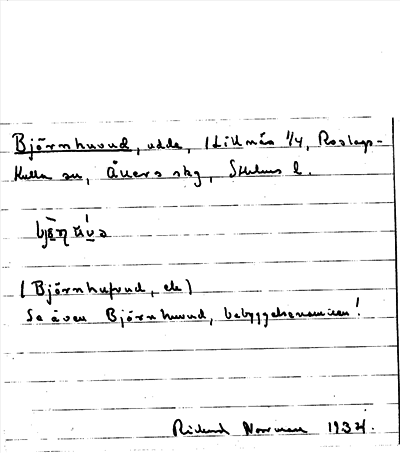 Björnhuvud, udde, 1 Lillnäs 1/4, Roslags-
Kulla sn, Åkers skg, Sthlms l.
(Björnhufvud, ek)
Se även Björnhuvud, bebyggelsenamnen!
Rickard Norrman 1934.